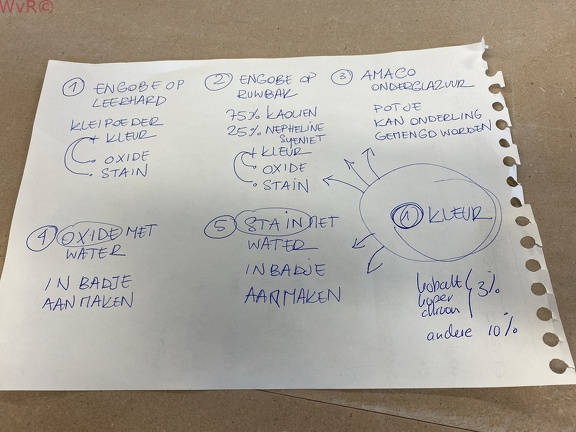 WvR©
1 ENGOBE OP
LEERHARD
KLEIPOEDER
+ KLEUR
OXIDE
STAIN
2 ENGOBE OP
RUWBAK
75% KAOLIEN
25% NEPHELINE
SYENIET
+ KLEUR
OXIDE
STAIN
3 AMACO
ONDERGLAZUUR
POTJE
KAN ONDERLING
GEMENGD WORDEN
4 OXIDE MET
WATER
IN BADJE
AANMAKEN
5 STAIN MET
WATER
IN BADJE
AANMAKEN
1 KLEUR
kobalt
koper
chroom
3%
andere 10%